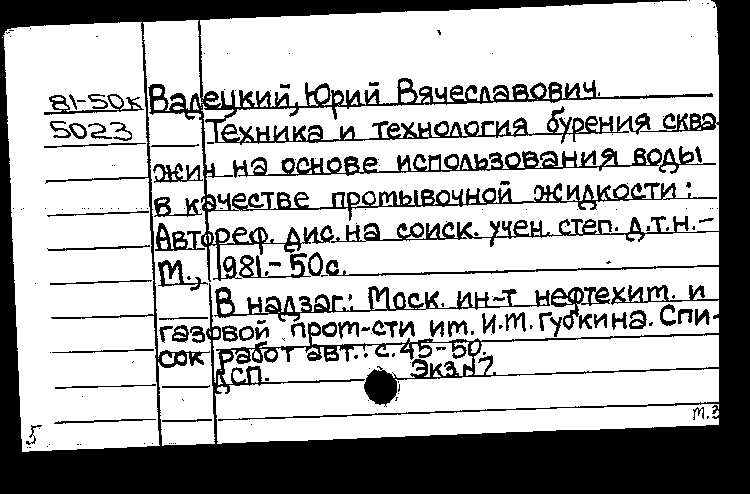 81-50к Валецкий, Юрий Вячеславович.
5023 Техника и технология бурения сква-
жин на основе использования воды
в качестве промывочной жидкости:
Автореф. дис. на соиск. учен. степ. д.т.н.-
М., 1981.- 50с.
В надзаг.: Моск. ин-т нефтехим. и
газовой пром-сти им. И.М. Губкина. Спи-
сок работ авт.: с. 45-50.
ДСП. Экз.№7.
т.з
5